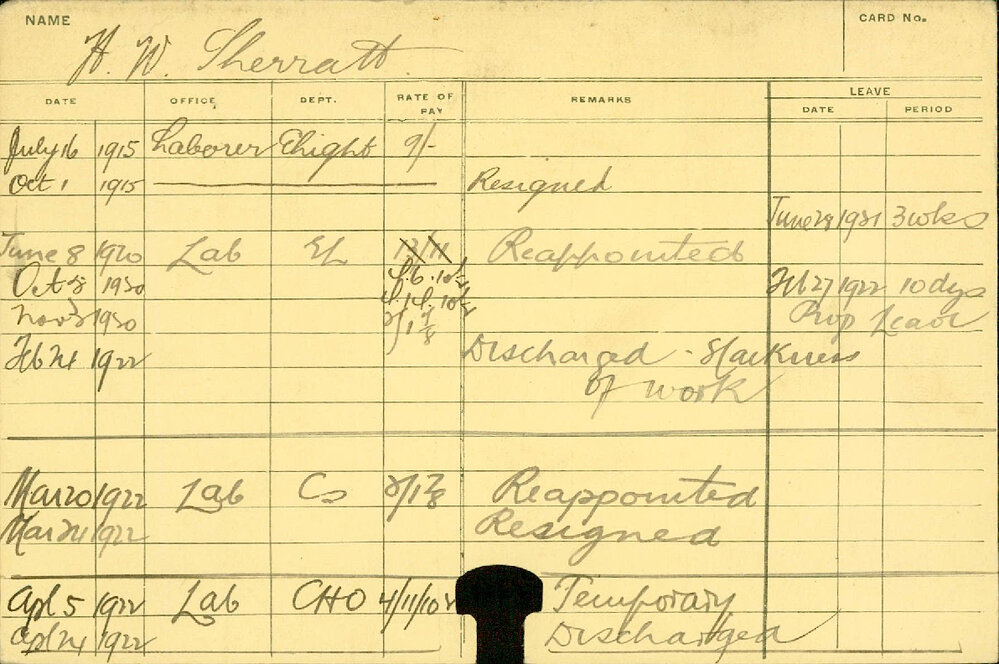 NAME CARD No.
H. W. Sherratt
DATE OFFICE DEPT. RATE OF PAY REMARKS LEAVE
DATE PERIOD
July 16 1915 Laborer Elight 9/-
Oct 1 1915 Resigned
June 28 1921 3 wks
June 8 1920 Lab EL 13/11 Reappointed
Oct 8 1920 4.6.10½ Feb 27 1922 10 dys
4.14.10½ Prop Leave
Nov 1920 2/1 7/8
Feb 24 1922 Discharged - Slackness
of work
Mar 20 1922 Lab Cs 2/1 7/8 Reappointed
Mar 24 1922 Resigned
Apl 5 1922 Lab CHO 4/11/10½ Temporary
Apl 24 1922 Discharged